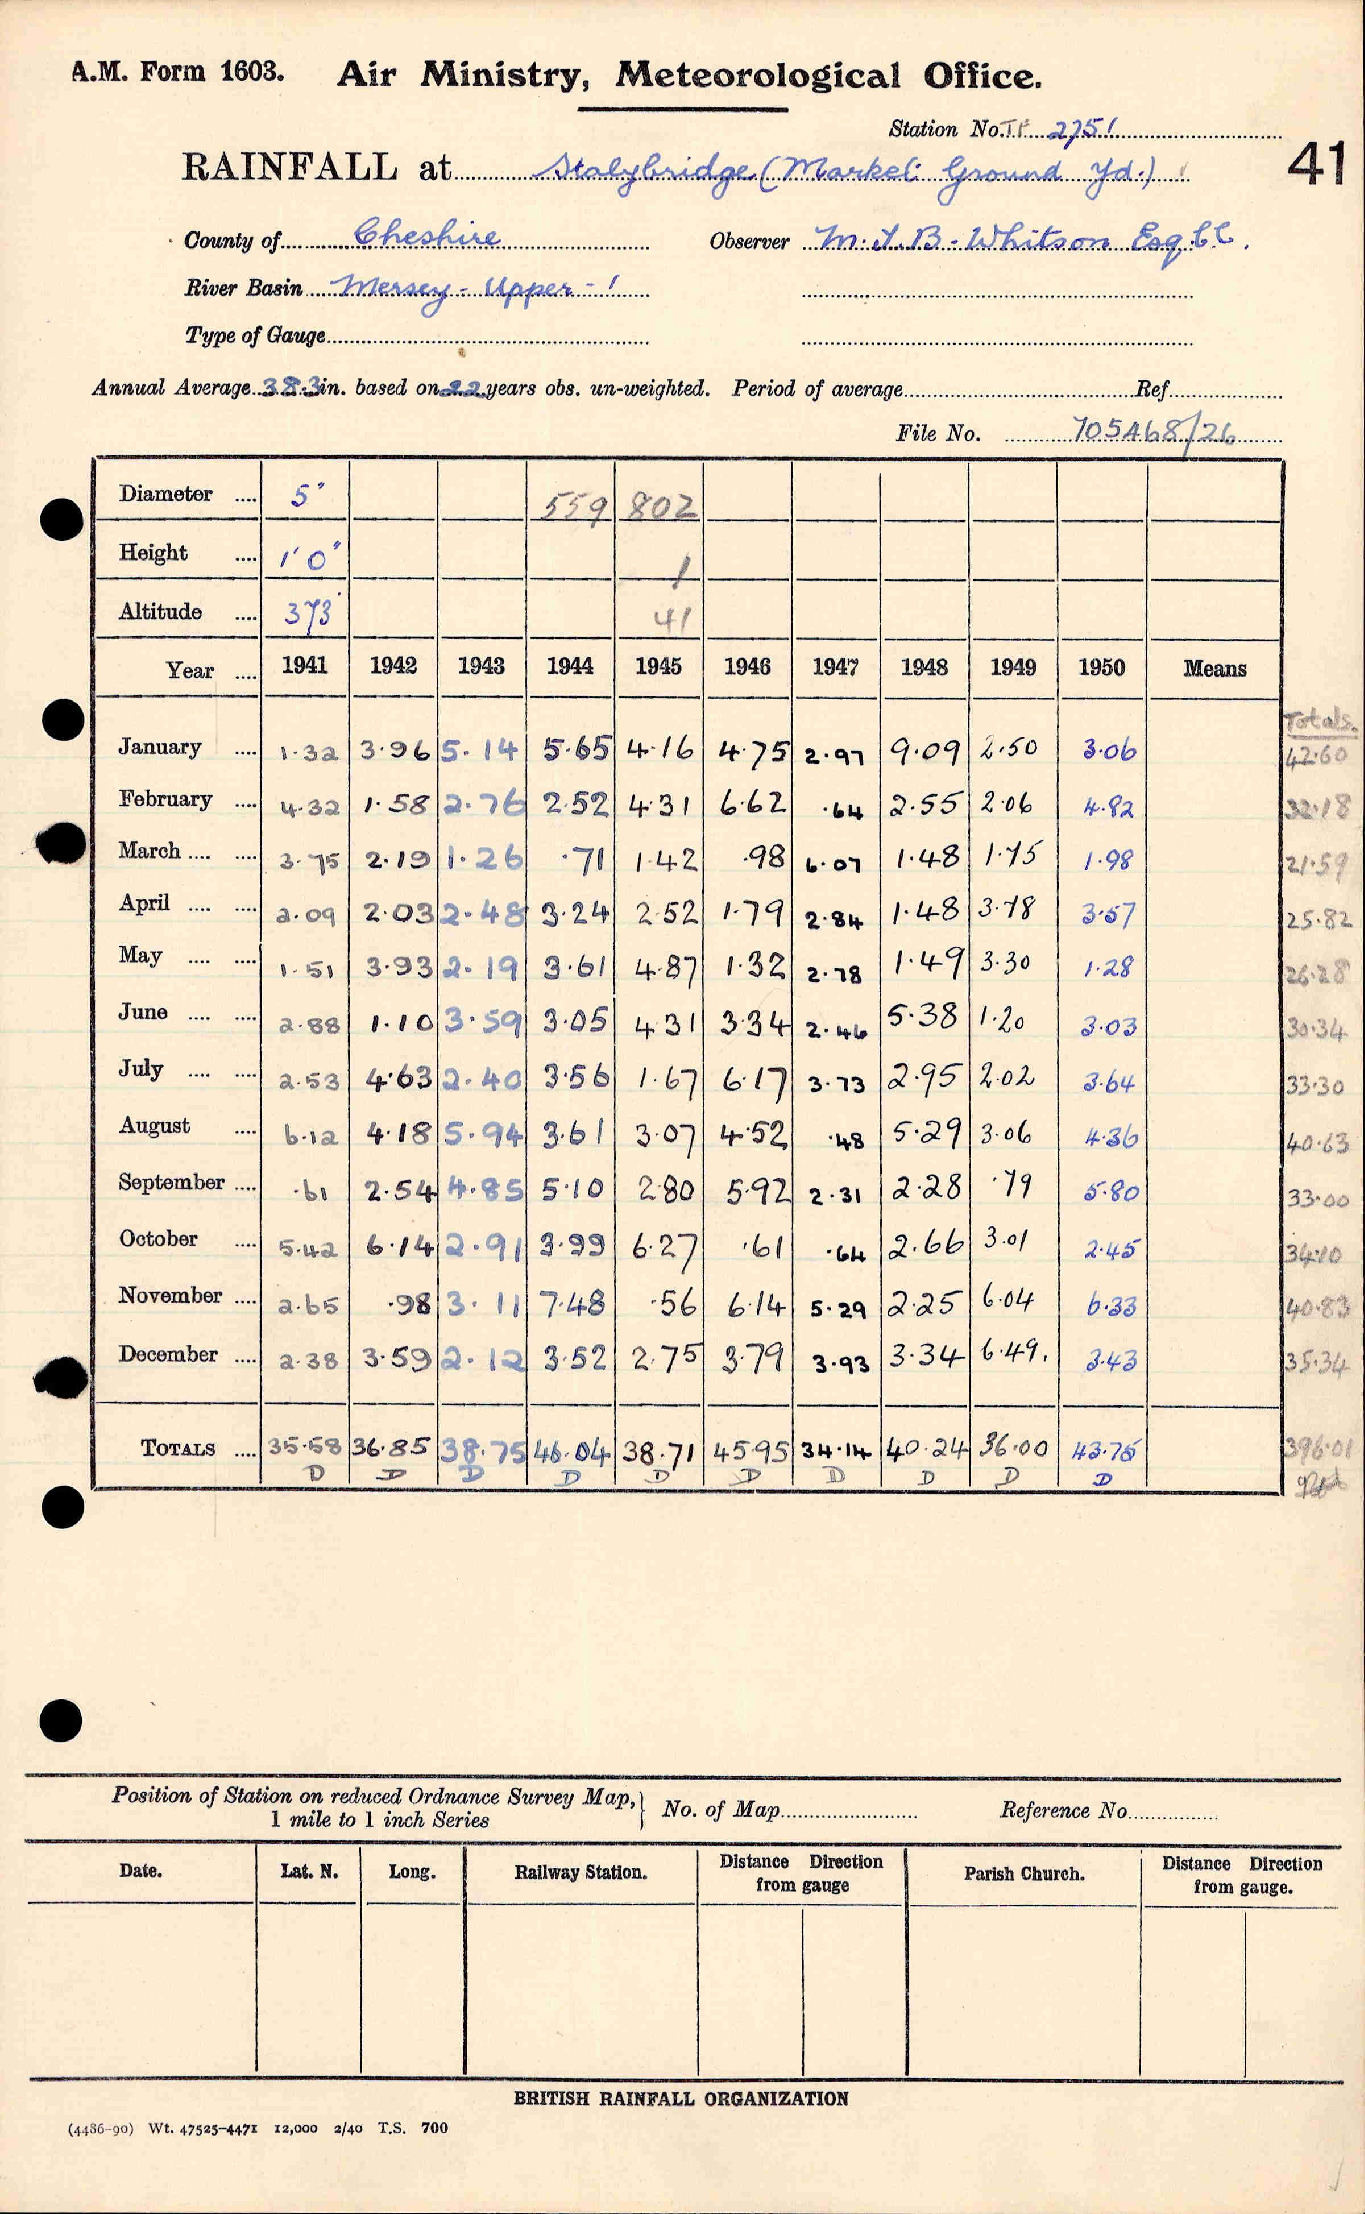 A.M. Form 1603. Air Ministry, Meteorological Office.
Station No. TP 2751
41
RAINFALL at Stalybridge (Market Ground Yd.)
County of Cheshire Observer M.T.B. Whitson Esq CE.
River Basin Mersey - Upper - 1
Type of Gauge
Annual Average 38.3 in. based on 22 years obs. un-weighted. Period of average Ref
File No. 705468/26
Diameter .... 5" 559 802
Height .... 1' 0" 1
Altitude .... 373' 41
Year .... 1941 1942 1943 1944 1945 1946 1947 1948 1949 1950 Means
Totals.
January .... 1.32 3.96 5.14 5.65 4.16 4.75 2.97 9.09 2.50 3.06 42.60
February .... 4.32 1.58 2.76 2.52 4.31 6.62 .64 2.55 2.06 4.82 32.18
March .... .... 3.75 2.19 1.26 .71 1.42 .98 6.07 1.48 1.75 1.98 21.59
April .... .... 2.09 2.03 2.48 3.24 2.52 1.79 2.84 1.48 3.78 3.57 25.82
May .... .... 1.51 3.93 2.19 3.61 4.87 1.32 2.78 1.49 3.30 1.28 26.28
June .... .... 2.88 1.10 3.59 3.05 4.31 3.34 2.46 5.38 1.20 3.03 30.34
July .... .... 2.53 4.63 2.40 3.56 1.67 6.17 3.73 2.95 2.02 3.64 33.30
August .... 6.12 4.18 5.94 3.61 3.07 4.52 .48 5.29 3.06 4.36 40.63
September .... .61 2.54 4.85 5.10 2.80 5.92 2.31 2.28 .79 5.80 33.00
October .... 5.42 6.14 2.91 3.99 6.27 .61 .64 2.66 3.01 2.45 34.10
November .... 2.65 .98 3.11 7.48 .56 6.14 5.29 2.25 6.04 6.33 40.83
December .... 2.38 3.59 2.12 3.52 2.75 3.79 3.93 3.34 6.49. 3.43 35.34
TOTALS .... 35.58 36.85 38.75 46.04 38.71 45.95 34.14 40.24 36.00 43.75 396.01
D D D D D D D D D D
Position of Station on reduced Ordnance Survey Map, 1 mile to 1 inch Series } No. of Map Reference No.
Date. Lat. N. Long. Railway Station. Distance Direction from gauge Parish Church. Distance Direction from gauge.
BRITISH RAINFALL ORGANIZATION
(4486-90) Wt. 47525-4471 12,000 2/40 T.S. 700